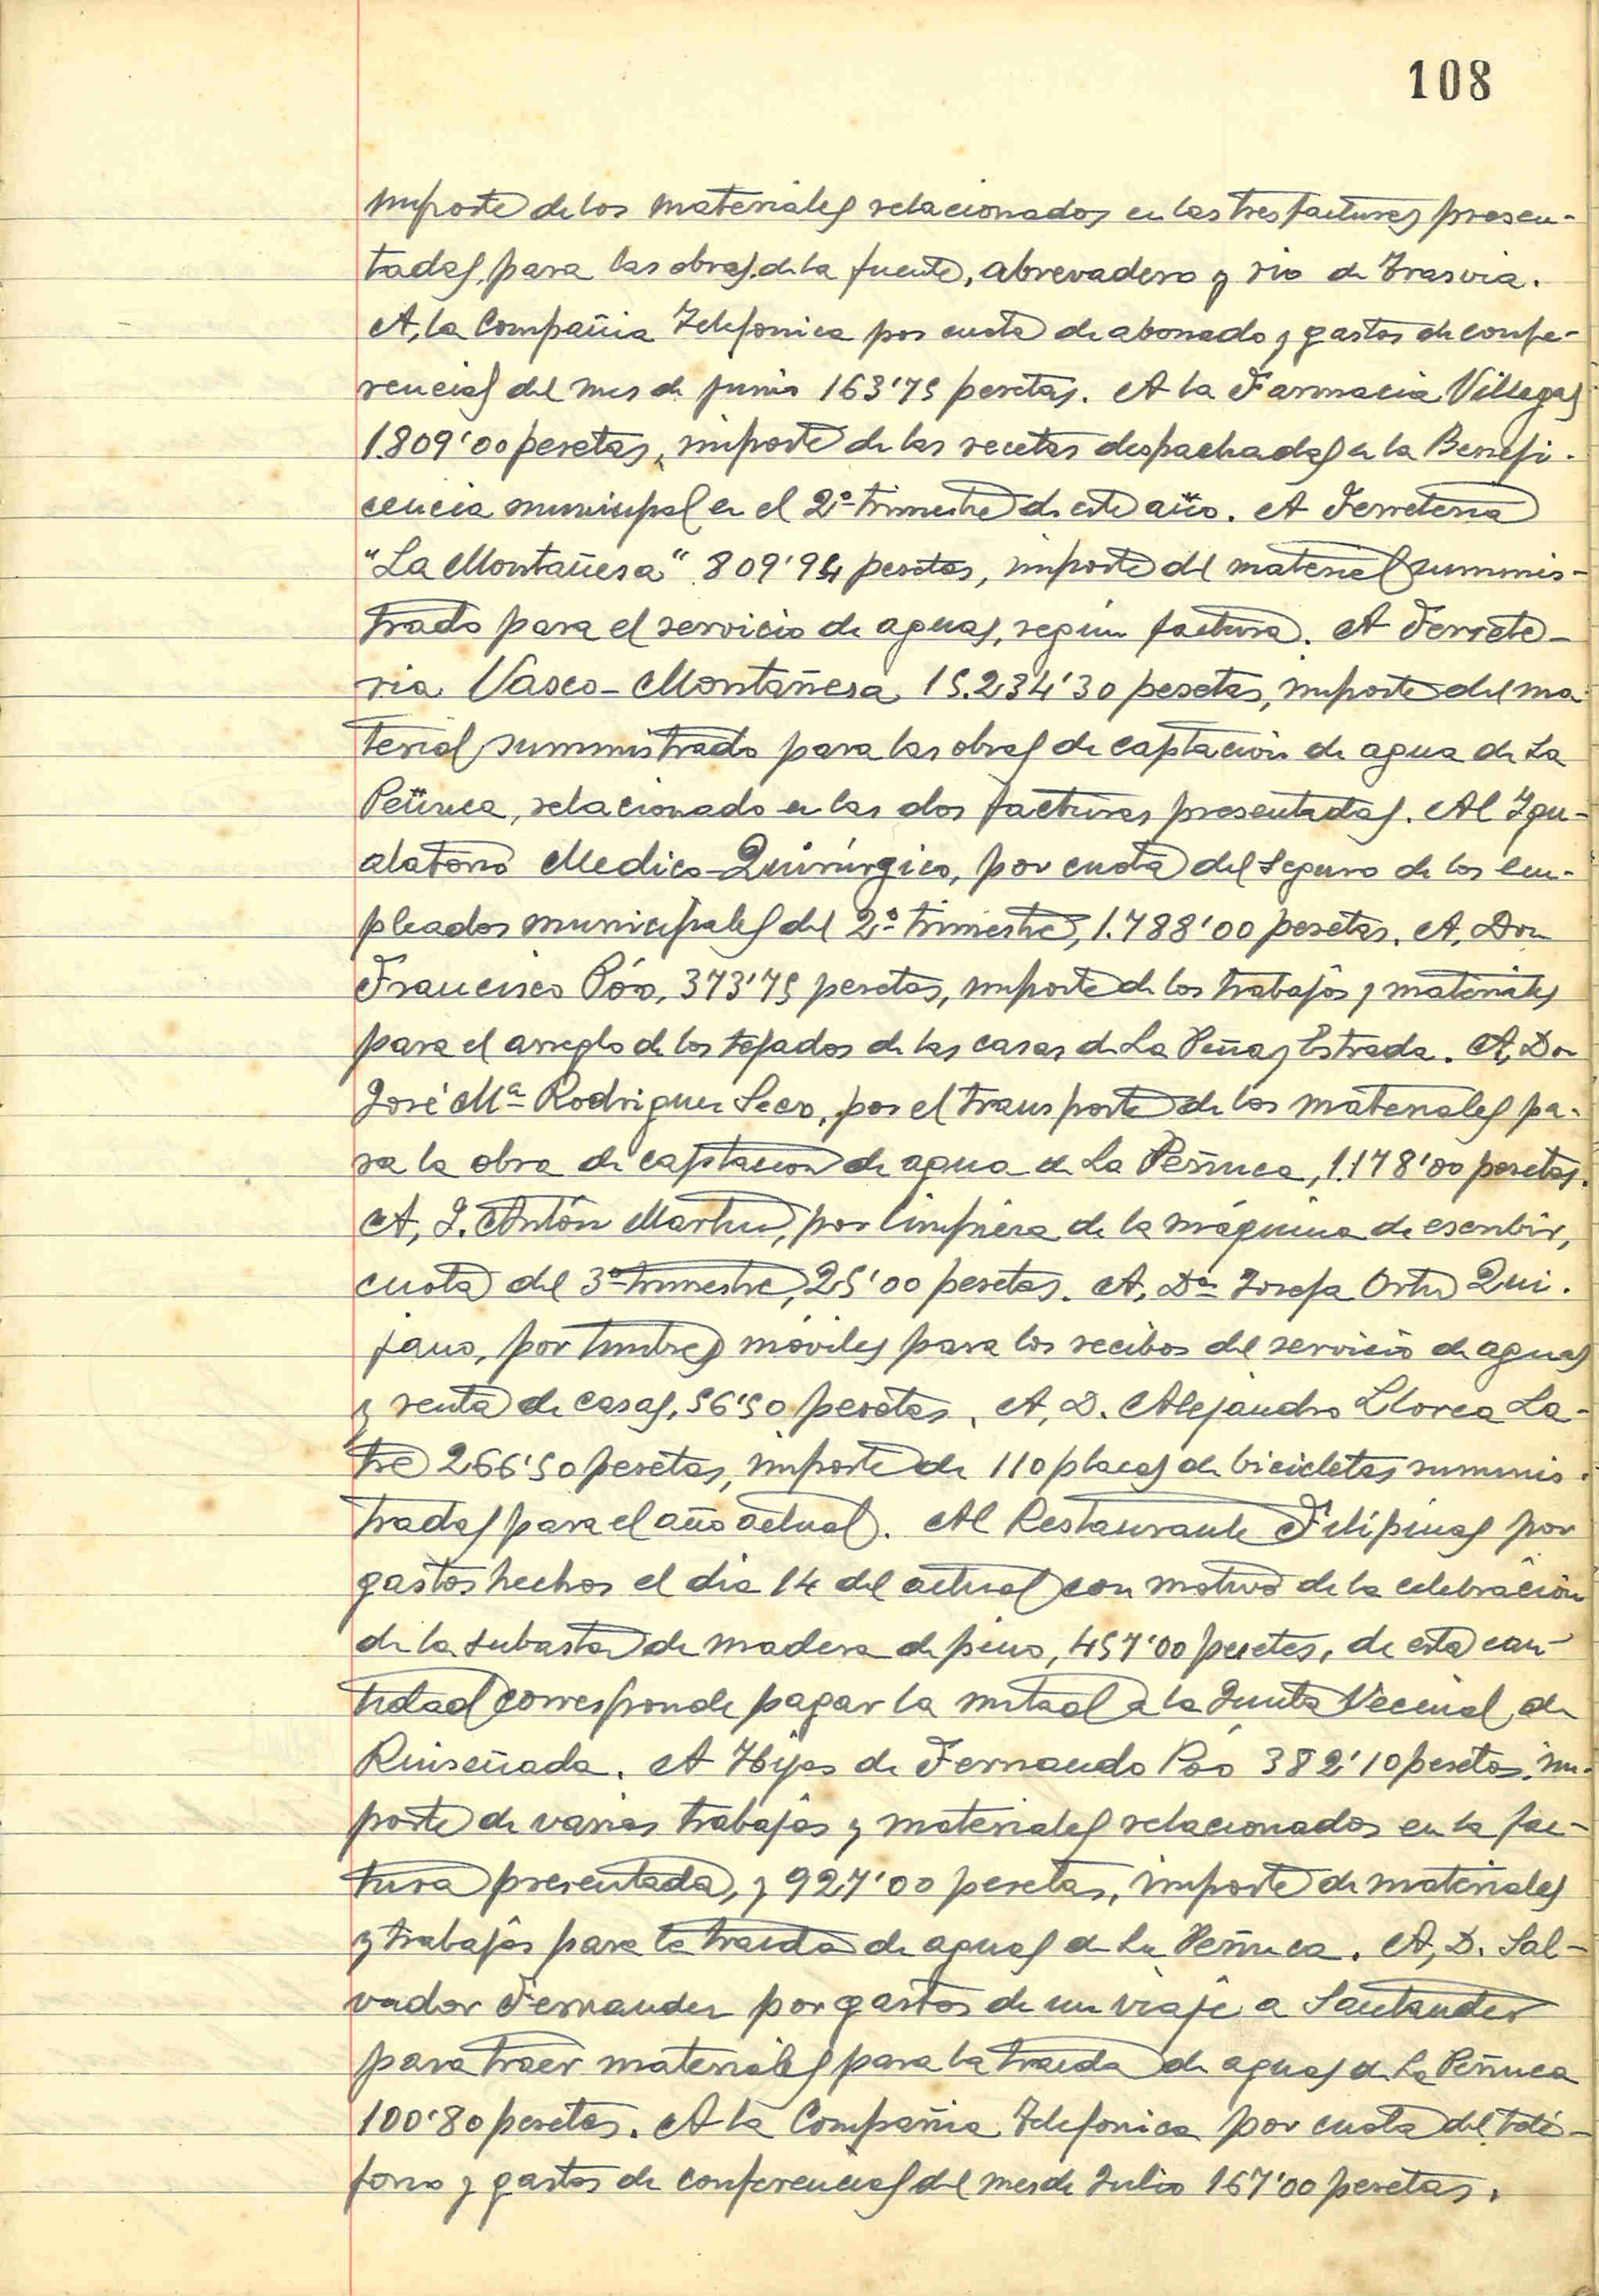 108
importe de los materiales relacionados en las tres facturas presen-
tadas, para las obras de la fuente, abrevadero y rio de Trasvia.
A, la Compañia Telefonica por cuota de abonado y gastos de confe-
rencias del mes de junio 163'75 pesetas. A la Farmacia Villegas
1.809'00 pesetas, importe de las recetas despachadas a la Benefi-
cencia municipal en el 2º trimestre de este año. A Ferreteria
"La Montañesa" 809'94 pesetas, importe del material suminis-
trado para el servicio de aguas, según factura. A Ferrete-
ria Vasco-Montañesa 15.234'30 pesetas, importe del ma-
terial suministrado para las obras de captación de agua de La
Peñuca, relacionado en las dos facturas presentadas. Al Igu-
alatorio Medico-Quirúrgico, por cuota del seguro de los em-
pleados municipales del 2º trimestre, 1.788'00 pesetas. A, Don
Francisco Póo, 373'75 pesetas, importe de los trabajos y materiales
para el arreglo de los tejados de las casas de La Peña y Estrada. A, Don
José Mª Rodriguez Seco, por el transporte de los materiales pa-
ra la obra de captacion de agua de La Peñuca, 1.178'00 pesetas.
A, J. Antón Martin, por limpieza de la máquina de escribir,
cuota del 3º trimestre, 25'00 pesetas. A, Dª Josefa Ortiz Qui-
jano, por timbres móviles para los recibos del servicio de aguas
y renta de casas, 56'50 pesetas. A, D. Alejandro Llorca La-
tre 266'50 pesetas, importe de 110 placas de bicicletas suminis-
tradas para el año actual. Al Restaurante Filipinas por
gastos hechos el dia 14 del actual con motivo de la celebración
de la subasta de madera de pino, 457'00 pesetas, de esta can-
tidad corresponde pagar la mitad a la Junta Vecinal de
Ruiseñada. A Hijos de Fernando Póo 382'10 pesetas, im-
porte de varios trabajos y materiales relacionados en la fac-
tura presentada, y 927'00 pesetas, importe de materiales
y trabajos para la traida de aguas de La Peñuca. A, D. Sal-
vador Fernandez por gastos de un viaje a Santander
para traer materiales para la traida de aguas de La Peñuca
100'80 pesetas. A la Compañia Telefonica por cuota del telé-
fono y gastos de conferencias del mes de Julio 167'00 pesetas.